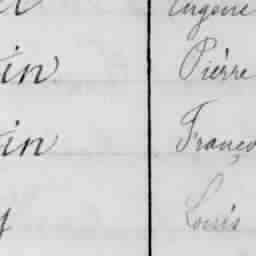 Eugène
in Pierre
in Franço
y Louis